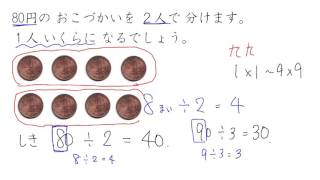 80円の おこづかいを 2人で 分けます。
1人 いくらに なるでしょう。
九九
1×1～9×9
8まい÷2=4
しき 80÷2=40.
90÷3=30.
8÷2=4
9÷3=3